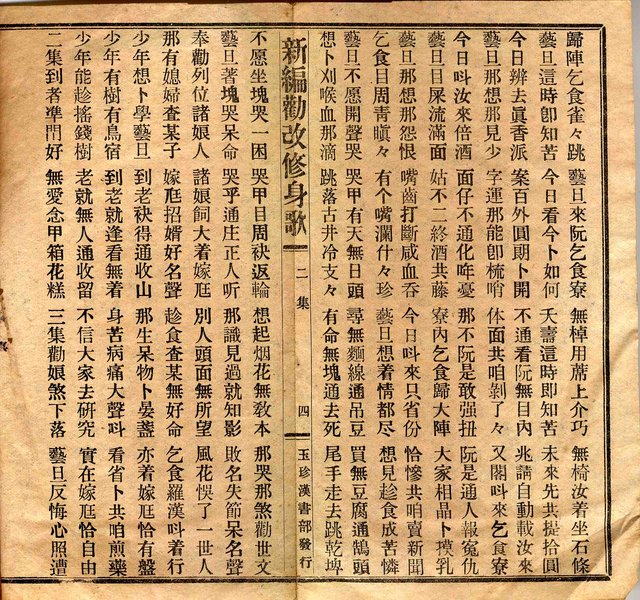 歸陣乞食雀々跳 藝旦來阮乞食寮 無棹用蓆上介巧 無椅汝着坐石條
藝旦這時即知苦 今日看今卜如何 夭壽這時即知苦 未來先共提拾圓
今日辨去眞香派 案百外圓朗卜開 不通看阮無目內 兆請自動載汝來
藝旦那想那見少 字運那能卽梳哨 体面共咱剝了々 又閣呌來乞食寮
今日呌汝來倍酒 面仔不通化㽪憂 那不阮是敢强扭 阮是通人報寃仇
藝旦目屎流滿面 姑不二終酒共藤 寮內乞食歸大陣 大家相晶卜摸乳
藝旦那想那怨恨 嘴齒打斷咸血吞 今日呌來只省份 恰慘共咱賣新聞
乞食目周青瞋々 有个嘴瀾什々珍 藝旦想着情都尽 想見趁食成苦憐
藝旦不愿開聲哭 哭甲有天無日頭 尋無麵線通吊豆 買無豆腐通鵠頭
想卜刈喉血那滴 跳落古井冷支々 有命無塊通去死 尾手走去跳乾埤
新編勸改修身歌 二集 四 玉珍漢書部發行
不愿坐塊哭一困 哭甲目周袂返輪 想起烟花無敎本 那哭那煞勸世文
藝旦著塊哭呆命 哭乎通庄正人听 那識見過就知影 敗名失節呆名聲
奉勸列位諸娘人 諸娘飼大着嫁尫 別人頭面無所望 風花悞了一世人
那有媳婦查某子 嫁尫招婿好名聲 趁食查某無好命 乞食羅漢呌着行
少年想卜學藝旦 到老袂得通收山 那生呆物卜晏盞 亦着嫁尫恰有盤
少年有樹有鳥宿 到老就逢看無着 身苦病痛大聲呌 看省卜共咱煎藥
少年能趁搖錢樹 老就無人通收留 不信大家去研究 實在嫁尫恰自由
二集到者準門好 無愛念甲箱花糕 三集勸娘煞下落 藝旦反悔心照遭